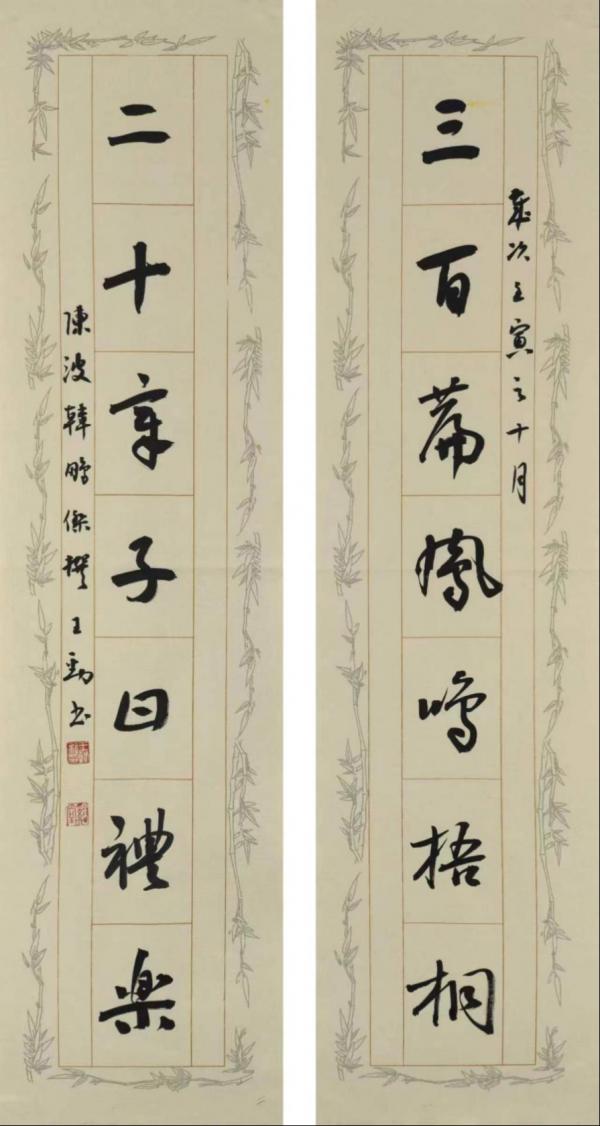 歲次壬寅之十月
三百篇鳳鳴梧桐
二十章子曰禮樂
陳波韓鵬傑撰王勁書